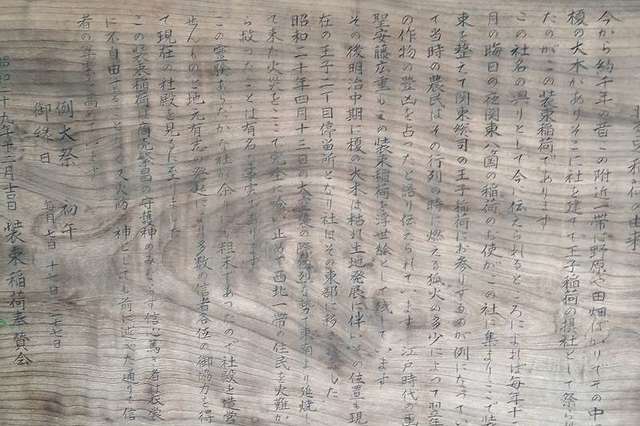 今から約千年の昔この附近一帯は野原や田畑ばかりでその中
榎の大木がありそこに社を建て王子稲荷の摂社として祭られ
たのがこの装束稲荷であります
この社名の興りとして今に伝えられるところによれば毎年十二
月の晦日の夜関東八ヶ国の稲荷のお使がこの社に集まりここで装
束を整えて関東総司の王子稲荷にお参りするのが例になってい
て当時の農民はその行列の時に燃える狐火の多少によって翌年
の作物の豊凶を占ったと語り伝えられています 江戸時代の画
聖安藤広重もこの装束稲荷を浮世絵として残しています
その後明治中期に榎の大木は枯れ土地発展に伴いその位置も現
在の王子二丁目停留所となり社はその東部に移しました
昭和二十年四月十三日の大空襲の際猛烈な勢で東南より延焼し
て来た火災をここで完全に食い止めて西北一帯の住民を火難か
ら救ったことは有名な事実であります
この霊験あらたかな社が余 粗末であったので社殿を造営
せんものとご地元有志の発起により多数の信者各位の御協力を得
て現在の社殿を見るに至りました
この装束稲荷は商売繁昌の守護神のみならず信心篤い者は衣裳
に不自由することなく又火防の神としても前に述べた通りで信
者の
例大祭 初午
御縁日
昭和二十九年十二月 装束稲荷奉賛会